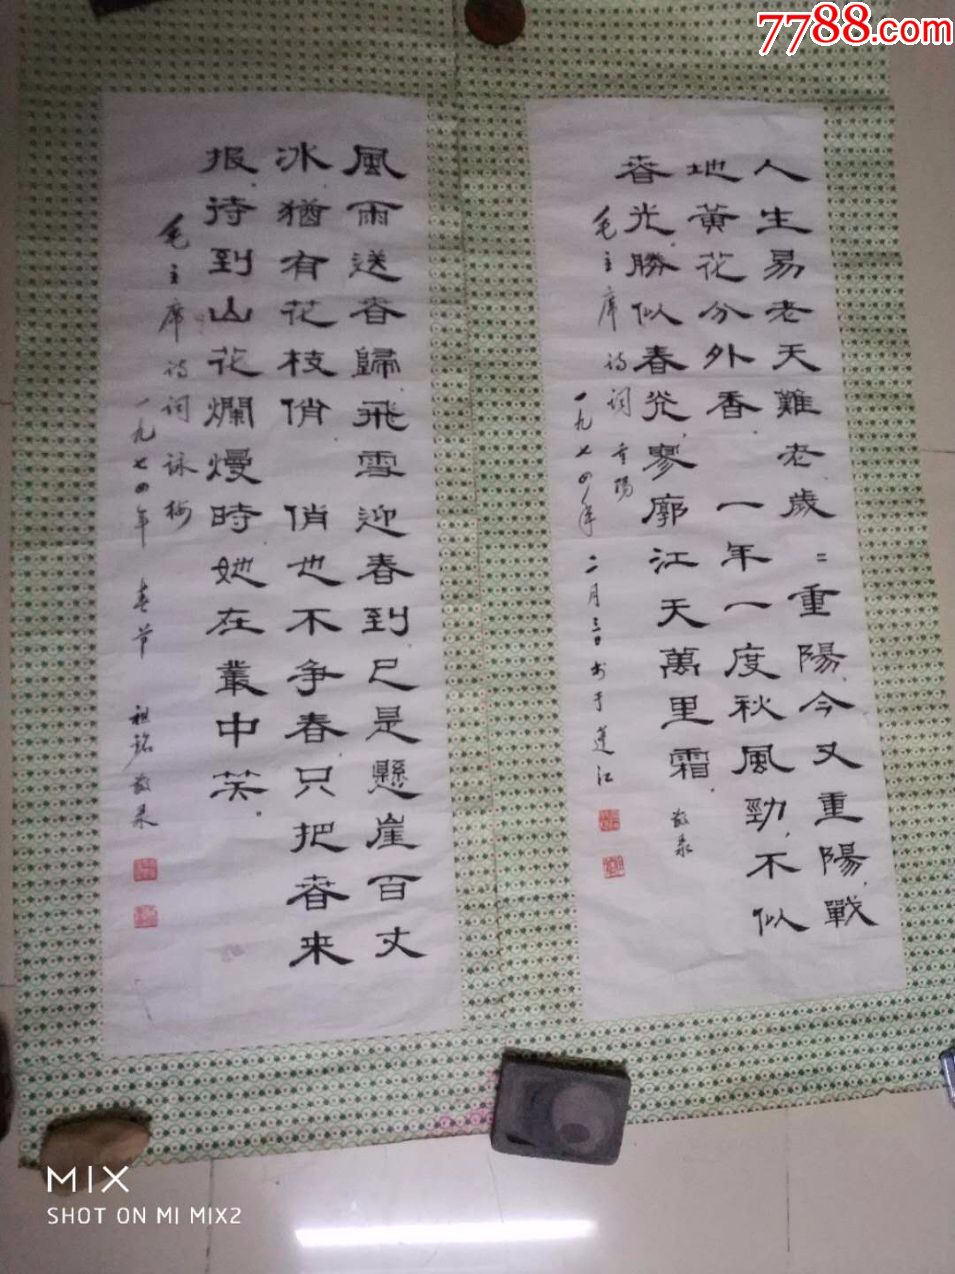 7788.com
人生易老天難老歲〻重陽今又重陽戰
地黃花分外香 一年一度秋風勁不似
春光勝似春光寥廓江天萬里霜 敬录
毛主席诗词重陽
一九七四年二月三日书于蓬江
風雨送春歸飛雪迎春到已是懸崖百丈
冰猶有花枝俏 俏也不争春只把春来
报待到山花爛熳時她在叢中笑
毛主席诗词咏梅
一九七四年 春节 祖铭敬录
MIX
SHOT ON MI MIX2